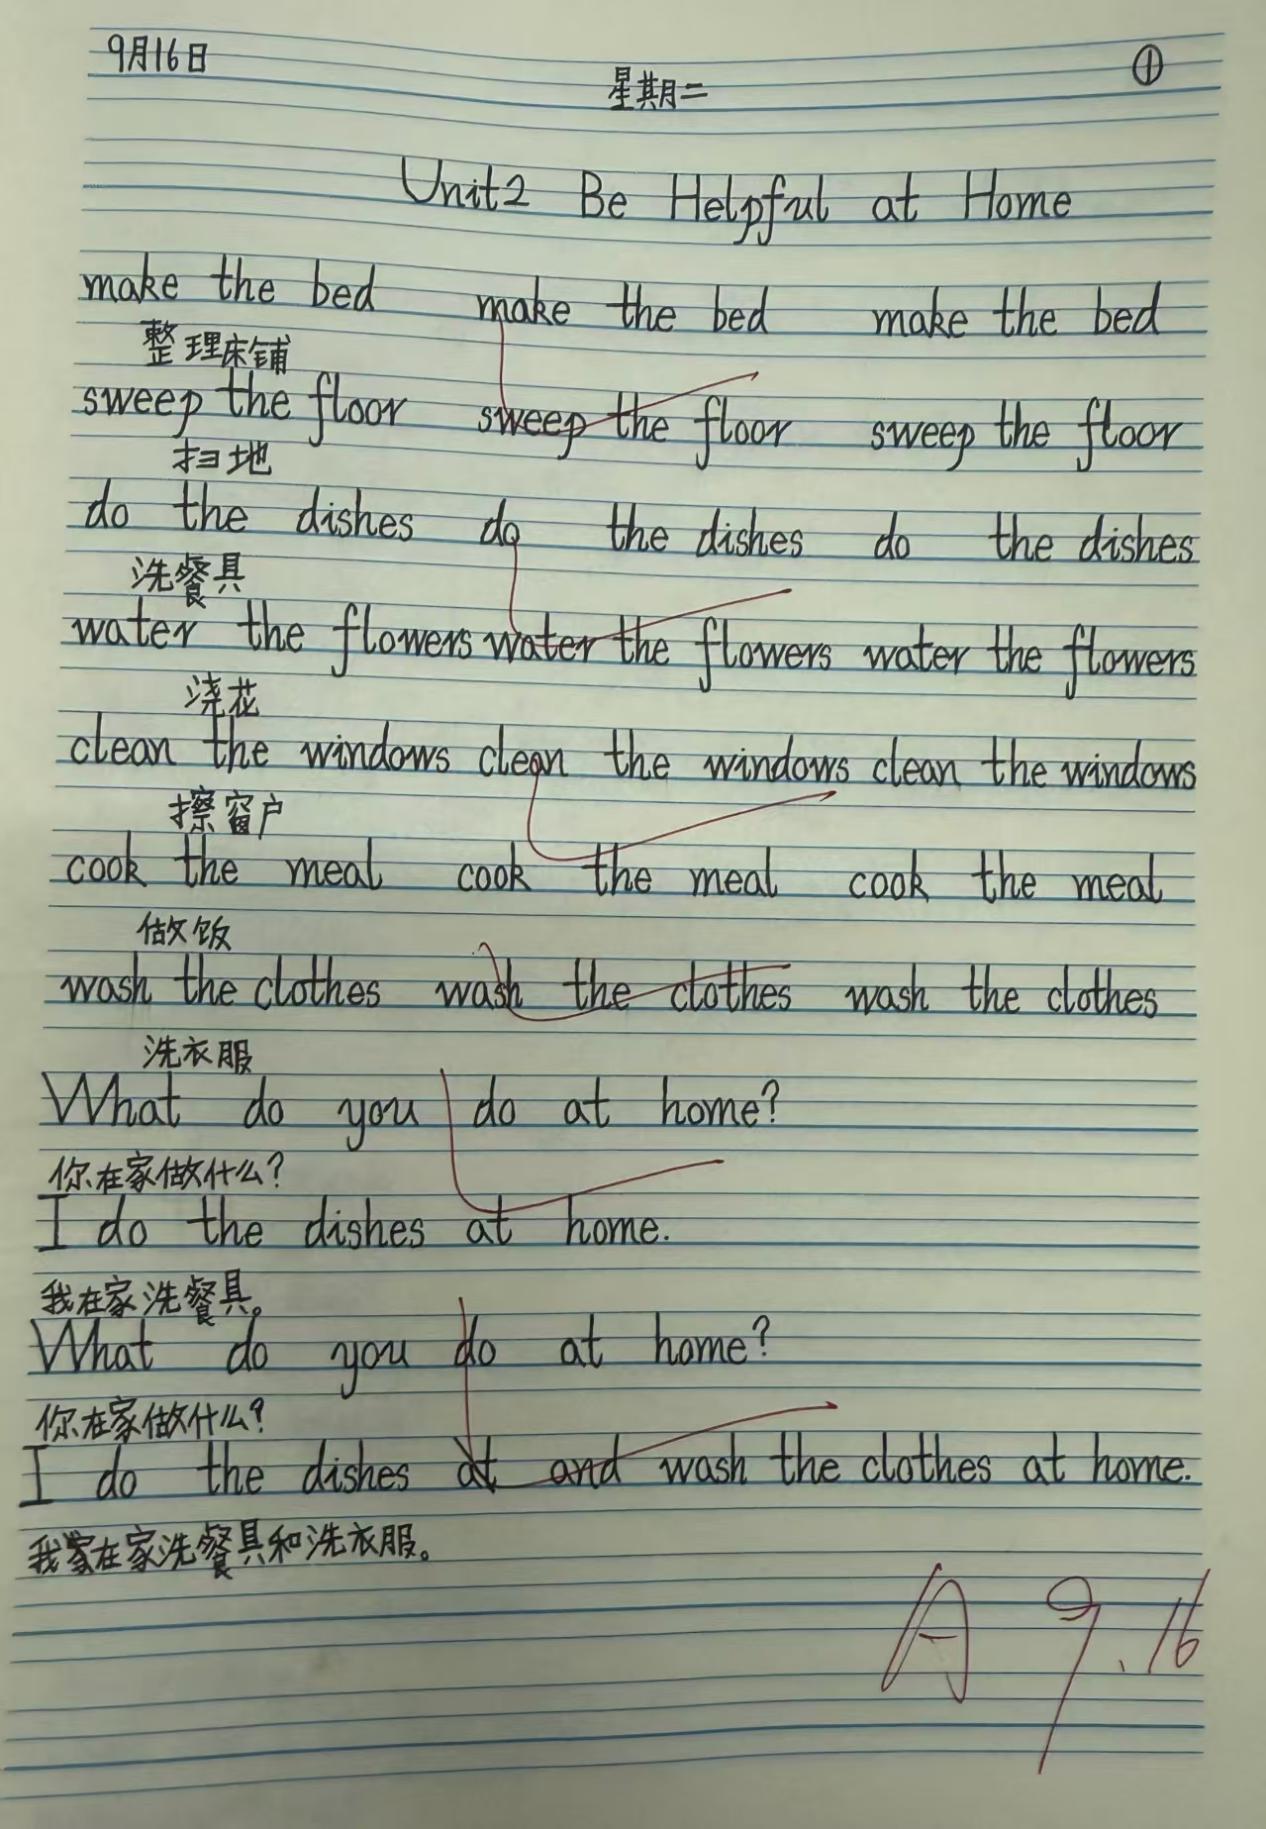 9月16日
星期二
①
Unit2 Be Helpful at Home
make the bed make the bed make the bed
整理床铺
sweep the floor sweep the floor sweep the floor
扫地
do the dishes do the dishes do the dishes
洗餐具
water the flowers water the flowers water the flowers
浇花
clean the windows clean the windows clean the windows
擦窗户
cook the meal cook the meal cook the meal
做饭
wash the clothes wash the clothes wash the clothes
洗衣服
What do you do at home?
你在家做什么?
I do the dishes at home.
我在家洗餐具。
What do you do at home?
你在家做什么?
I do the dishes at and wash the clothes at home.
我家在家洗餐具和洗衣服。
A 9.16